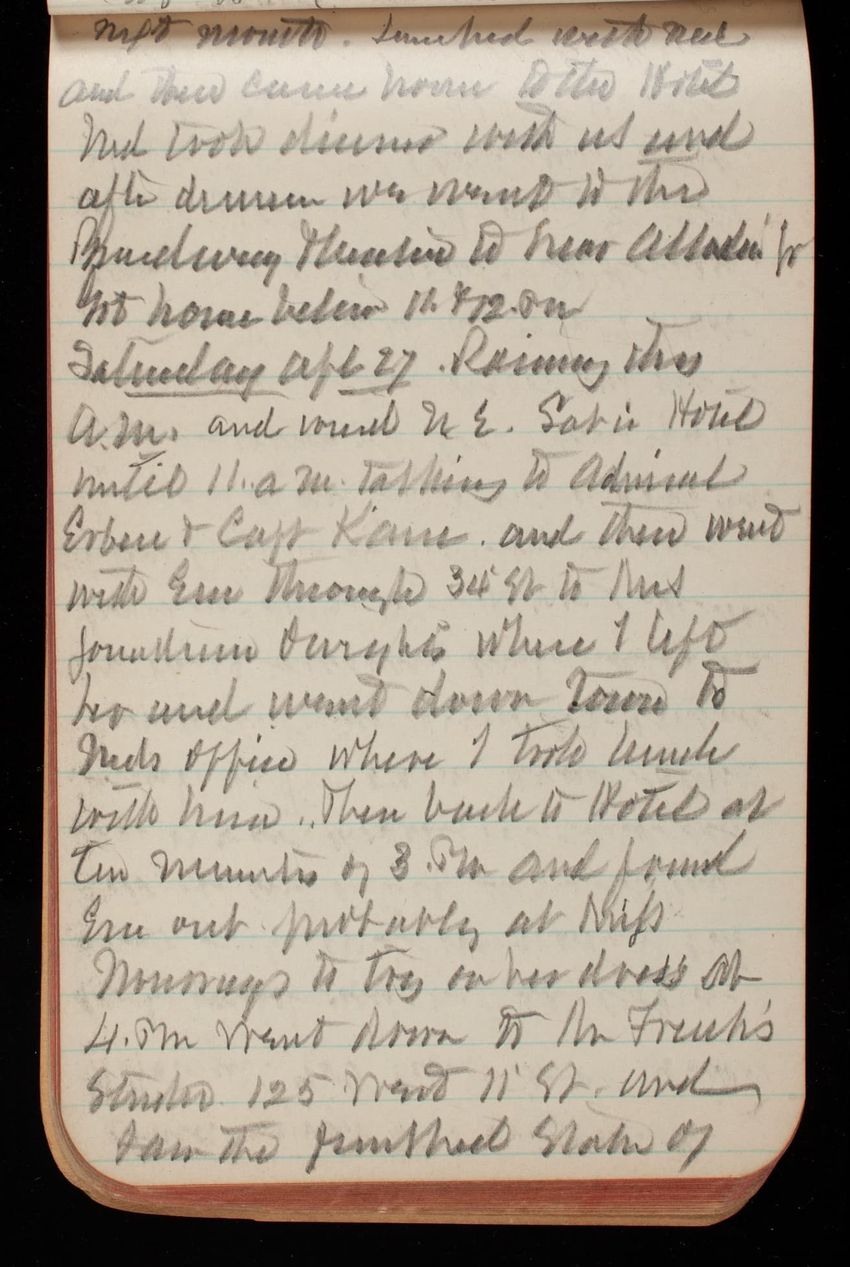 next month. Lunched with Ned
and then came home to the Hotel
Ned took dinner with us and
after dinner we went to the
Broadway Theatre to hear Alladin Jr
Got home before 11 & 12. Pm
Saturday Apl 27. Raining this
A.M. and wind N E. Sat in Hotel
until 11. a m. talking to Admiral
Erben & Capt Kane. and then went
with Em through 34 St to Mrs
where I left
her and went down town to
Neds office where I took lunch
with him. Then back to Hotel at
ten minutes of 3. Pm and found
Em out probably at Miss
to try on her dress At
4. Pm went down to Mr French's
Studio 125 West 11 St. and
Saw the finished State of